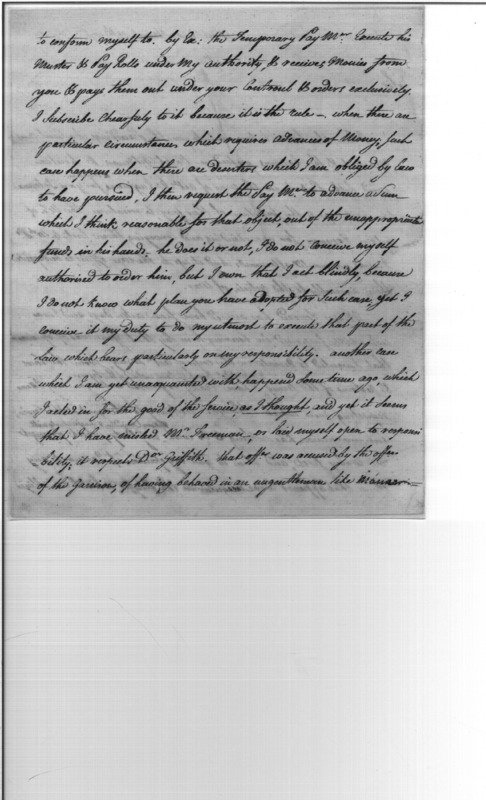 to conform myself to. by Ex: the Temporary Pay Mr. Execute his
Muster & Pay Rolls under My authority, & receives Monies from
you & pays them out under your Controul & orders exclusively.
I Subscribe chearfuly to it because it is the rule — when there are
particular circumstances which requires advances of Money, Such
case happens when there are deserters which I am obliged by Law
to have pursued, I then request the Pay Mr. to advance a Sum
which I think reasonable for that object, out of the unappropriate
funds in his hands. he does it or not, I do not Conceive myself
authorised to order him, but I own that I act blindly, because
I do not know what plan you have adopted for Such case, yet I
conceive it my duty to do my utmost to execute that part of the
Law which bears particularly on my responsibility. another case
which I am yet unaquainted with happend Some time ago, which
I acted in for the good of the Service as I thought, and yet it Seems
that I have misled Mr. Freeman, or laid myself open to responsi
bility, it respects Dor. Griffith. that offr. was accused by the offrs
of the Garrison, of having behaved in an ungentleman like Manner —